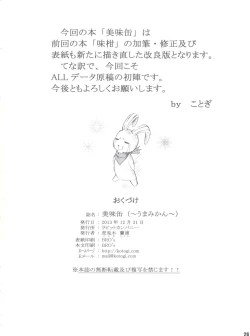 今回の本「美味缶」は
前回の本「味柑」の加筆・修正及び
表紙も新たに描き直した改良版となります。
てな訳で、今回こそ
ALLデータ原稿の初陣です。
今後ともよろしくお願いします。
by ことぎ
おくづけ
誌名：美味缶（～うまみかん～）
発行日：2013年12月31日
発行所：
発行者：
表紙印刷：
本文印刷：
ホームページ：http://kotogi.com
Eメール：mail@kotogi.com
※本誌の無断転載及び複写を禁じます！！